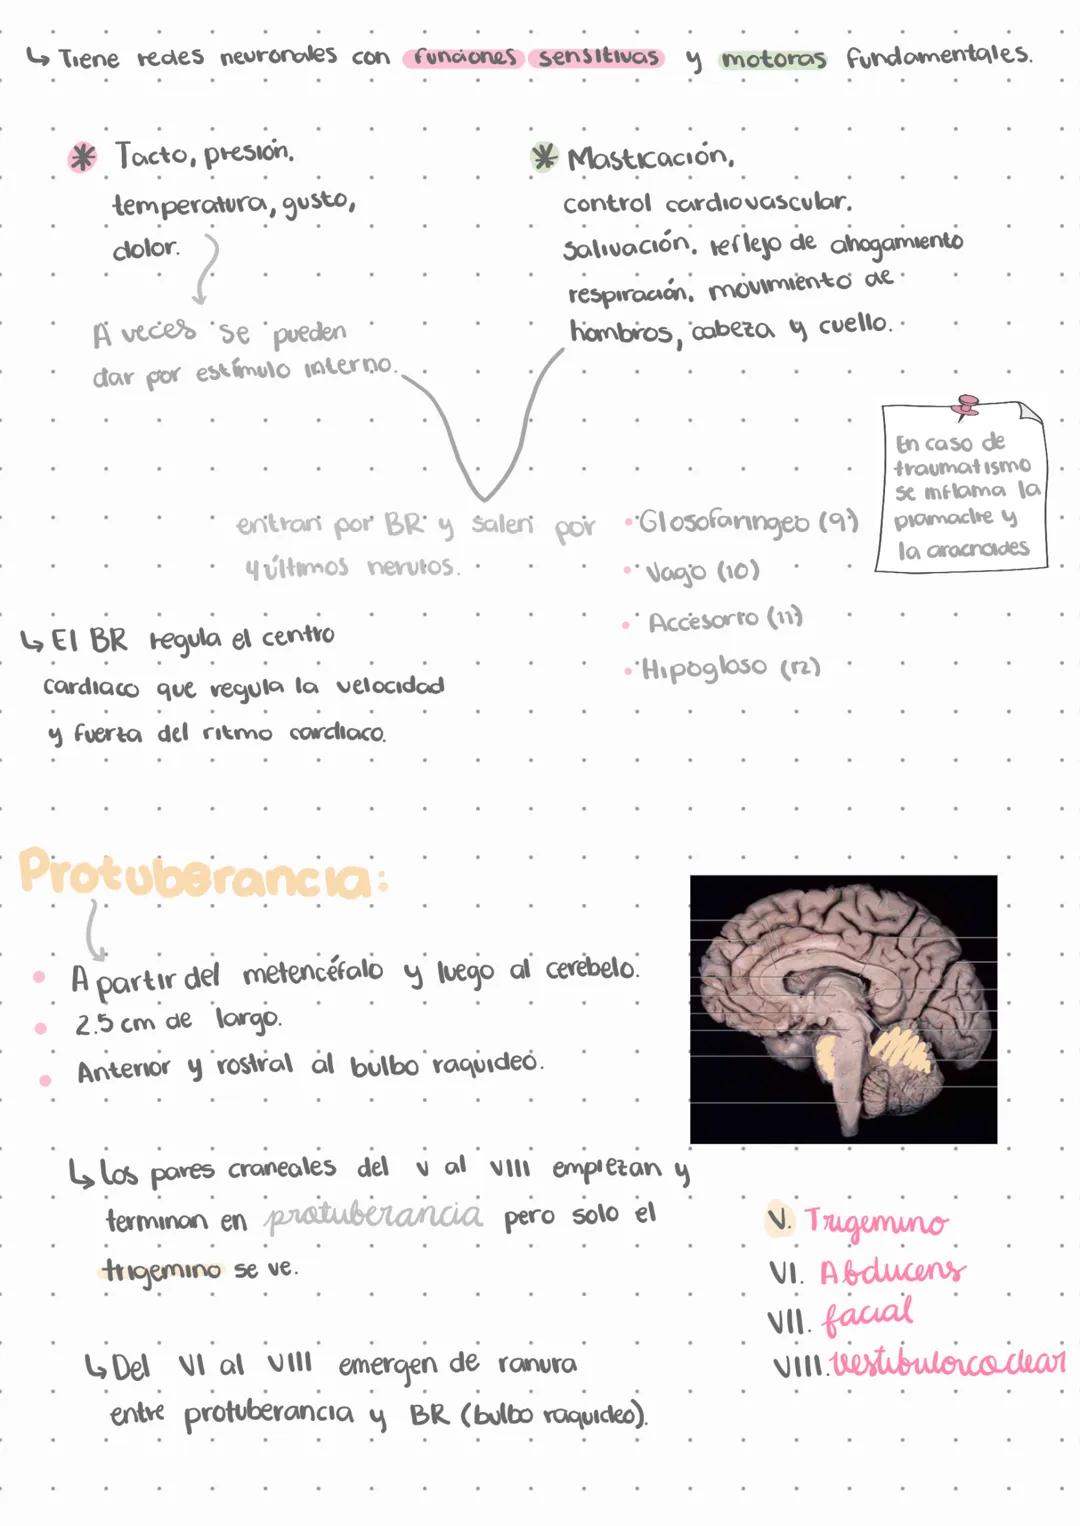 ↳ Tiene redes neuronales con funciones sensitivas y motoras fundamentales.
* Tacto, presión,
temperatura, gusto,
dolor.
A veces se pueden
dar por estímulo interno.
* Masticación,
control cardiovascular.
salivación, reflejo de ahogamiento
respiración, movimiento de
hombros, cabeza y cuello.
En caso de
traumatismo
se inflama la
piamadre y
la aracnoides
entran por BR y salen por
4 últimos nervios.
• Glosofaringeo (9)
• Vago (10)
• Accesorio (11)
• Hipogloso (12)
↳ El BR regula el centro
cardiaco que regula la velocidad
y fuerza del ritmo cardiaco.
Protuberancia:
• A partir del metencéfalo y luego al cerebelo.
• 2.5 cm de largo.
• Anterior y rostral al bulbo raquideo.
↳ Los pares craneales del V al VIII empiezan y
terminan en protuberancia pero solo el
trigemino se ve.
V. Trigemino
VI. Abducens
VII. facial
VIII. vestibulococlear
↳ Del VI al VIII emergen de ranura
entre protuberancia y BR (bulbo raquideo).